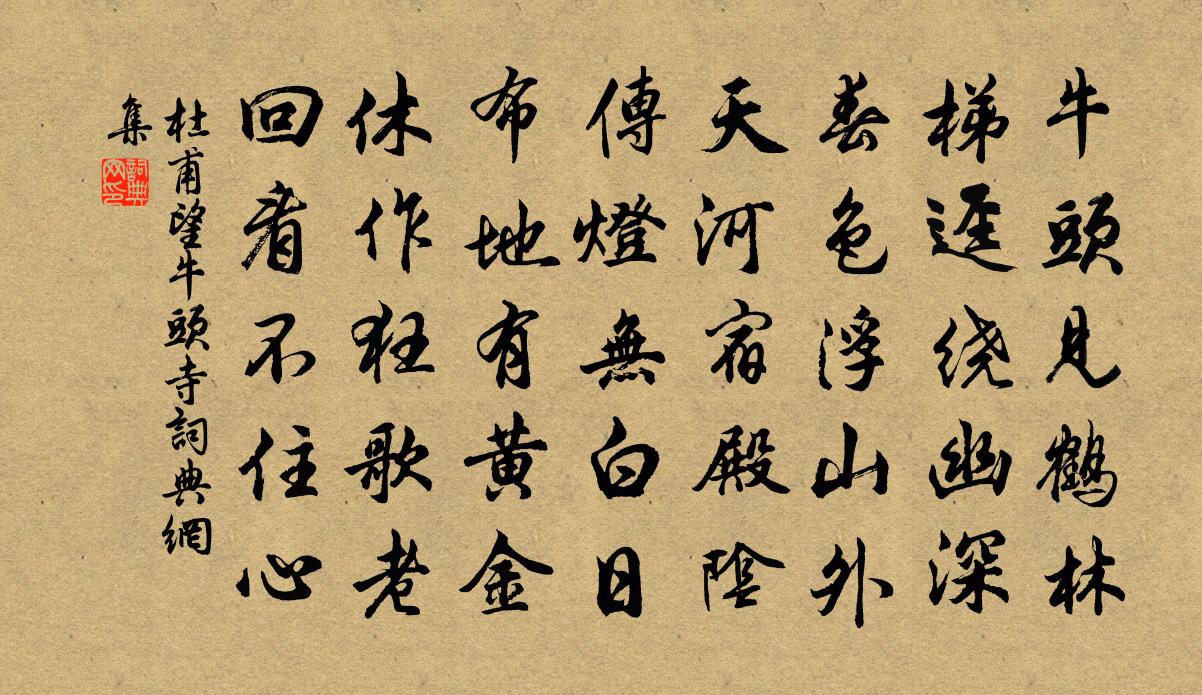 牛頭見鶴林
梯迳绕幽深
春色浮山外
天河宿殿陰
傳燈無白日
布地有黄金
休作狂歌老
回看不住心
杜甫望牛頭寺詞典網
集
詞典
网印